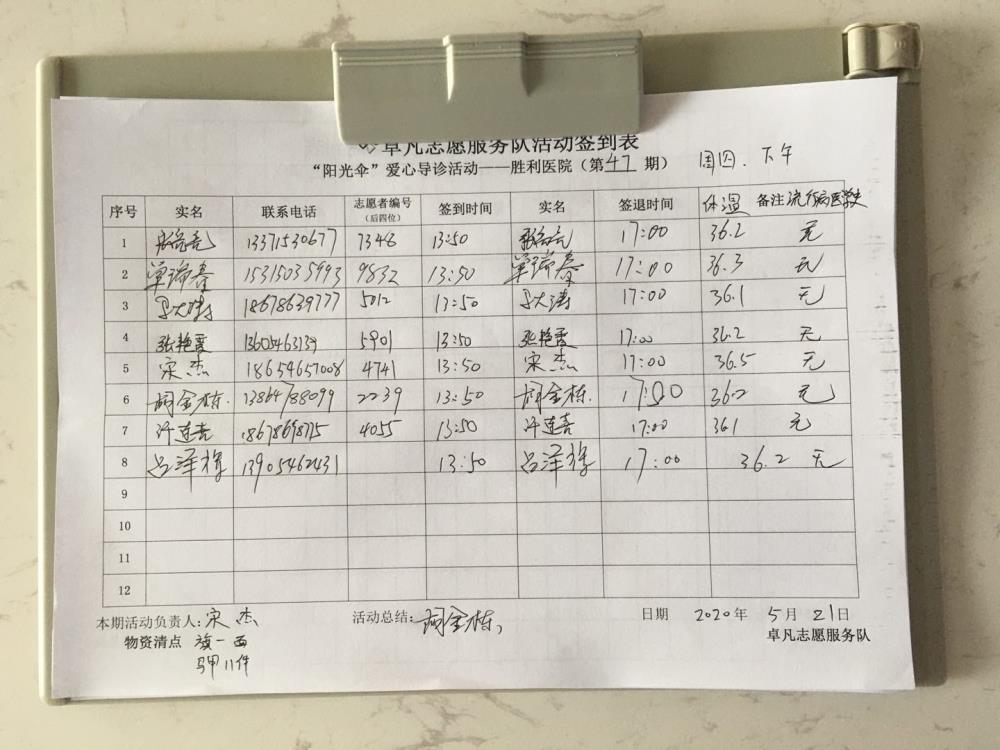 卓凡志愿服务队活动签到表
“阳光伞”爱心导诊活动——胜利医院（第47期） 周四.下午
序号 实名 联系电话 志愿者编号（后四位） 签到时间 实名 签退时间 体温 备注流行病医学史
1 13371530677 7348 13:50 17:00 36.2 无
2 单瑞春 15315035993 9832 13:50 单瑞春 17:00 36.3 无
3 18678639777 5012 13:50 17:00 36.1 无
4 张艳霞 13605463139 5901 13:50 张艳霞 17:00 36.2 无
5 宋杰 18654657008 4741 13:50 宋杰 17:00 36.5 无
6 金栋. 13864788099 2239 13:50 金栋. 17:00 36.2 无
7 许连喜 18678698775 4055 13:50 许连喜 17:00 36.1 无
8 吕泽 13905462431 13:50 吕泽 17:00 36.2 无
9
10
11
12
本期活动负责人:宋杰 活动总结: 金栋 日期 2020年5月21日
物资清点 旗一面 卓凡志愿服务队
马甲11件